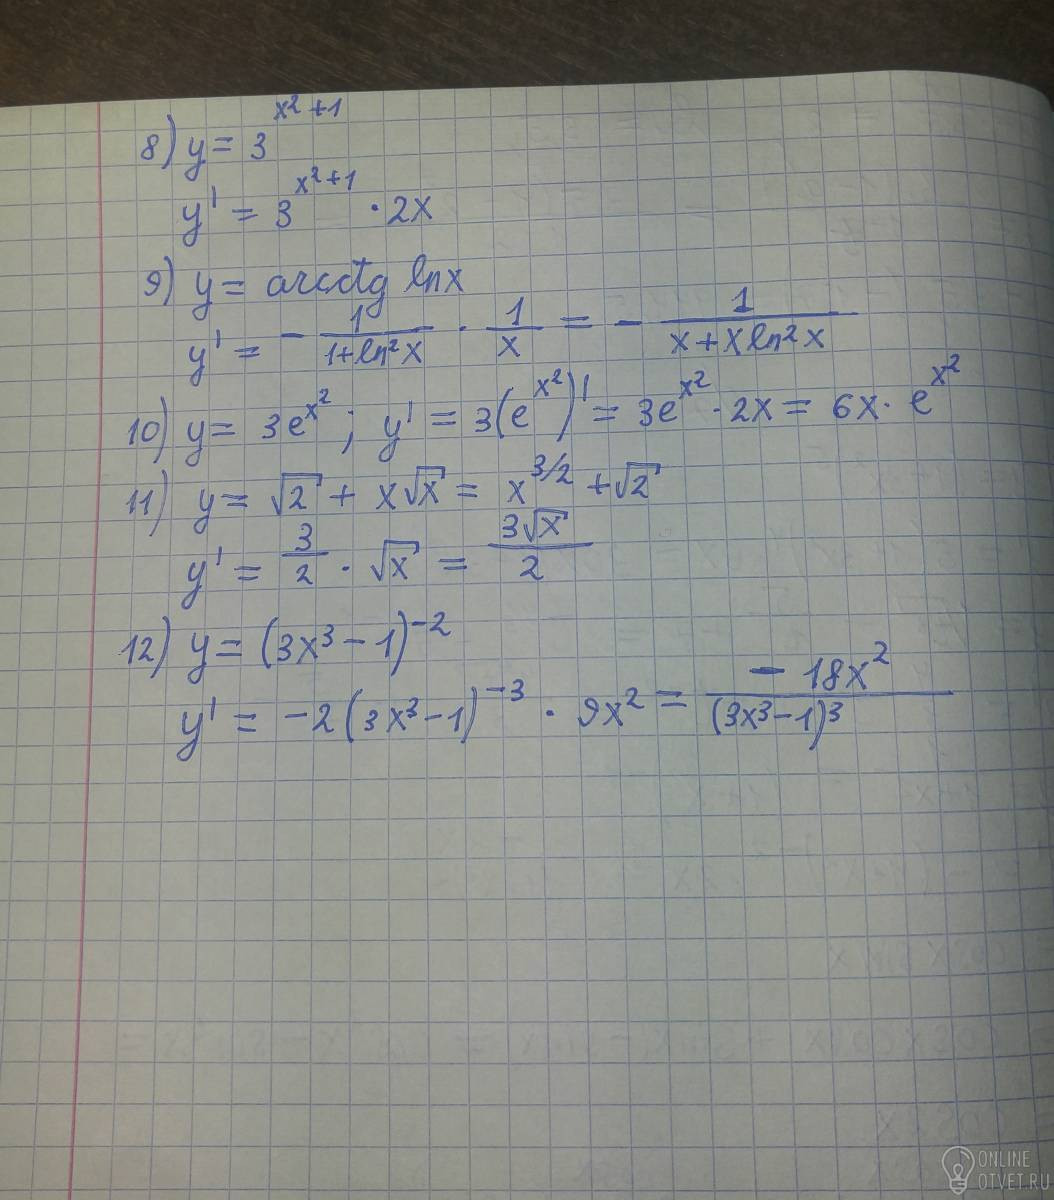 8) y = 3^(x²+1)
y' = 3^(x²+1) · 2x
9) y = arcctg lnx
y' = - 1/(1+ln²x) · 1/x = - 1/(x+xln²x)
10) y = 3e^(x²); y' = 3(e^(x²))' = 3e^(x²) · 2x = 6x · e^(x²)
11) y = √2 + x√x = x^(3/2) + √2
y' = 3/2 · √x = 3√x/2
12) y = (3x³-1)^(-2)
y' = -2(3x³-1)^(-3) · 9x² = -18x²/(3x³-1)³
ONLINE
OTVET.RU